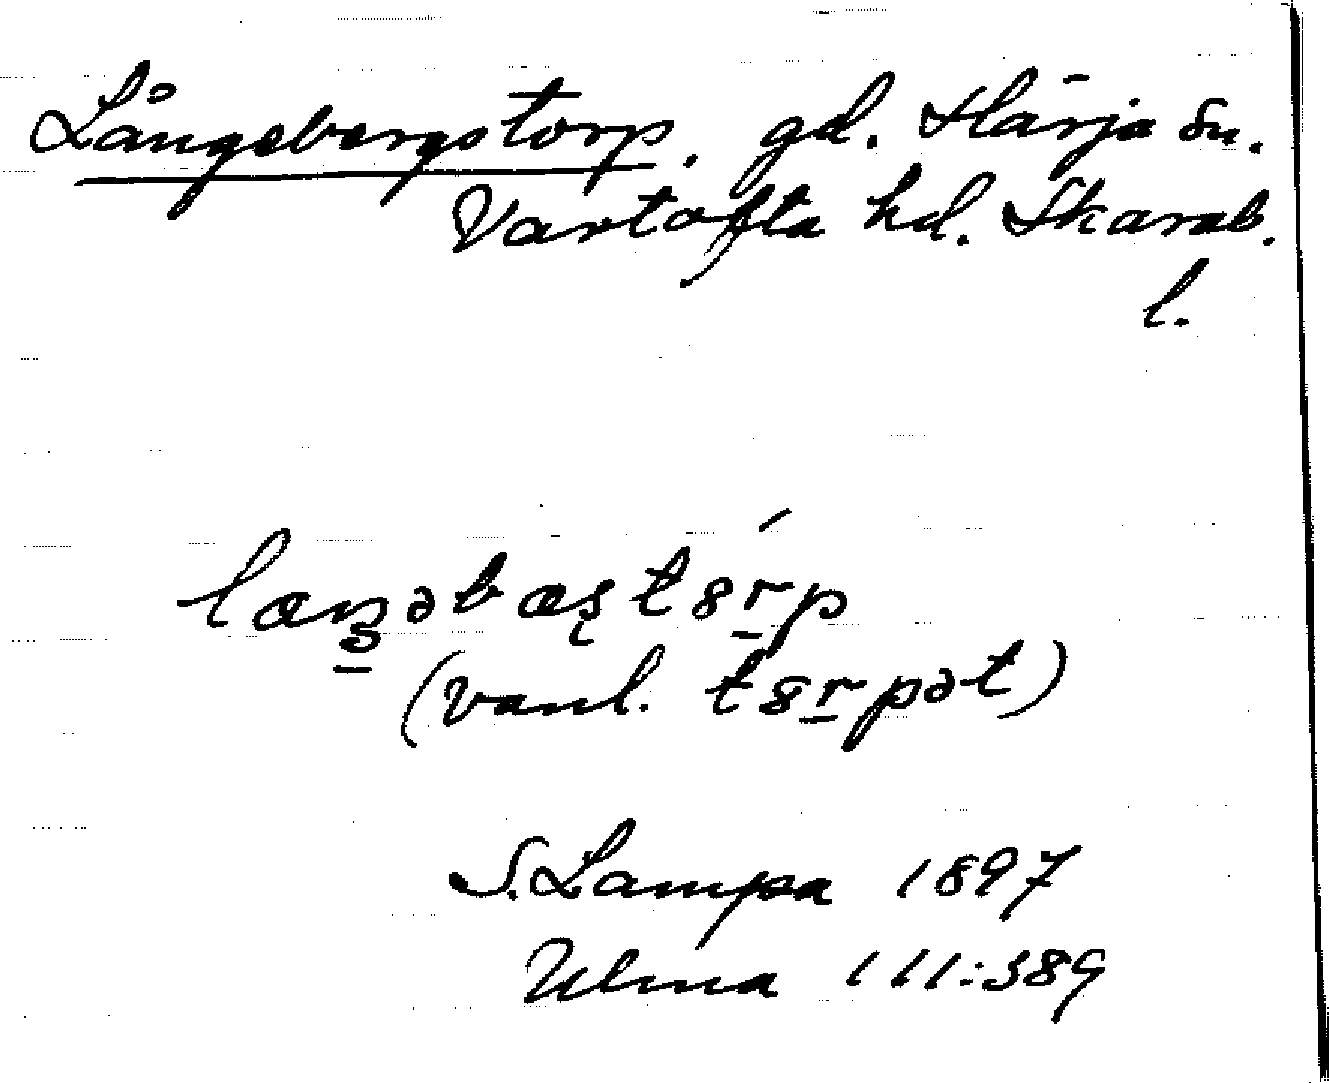 Långebergstorp. gd. Härja sn.
Vartofta hd. Skarab.
l.
læŋəbæʂtɞŕp
(vanl. tɞrpət)
S. Lampa 1897
Ulma 111:389